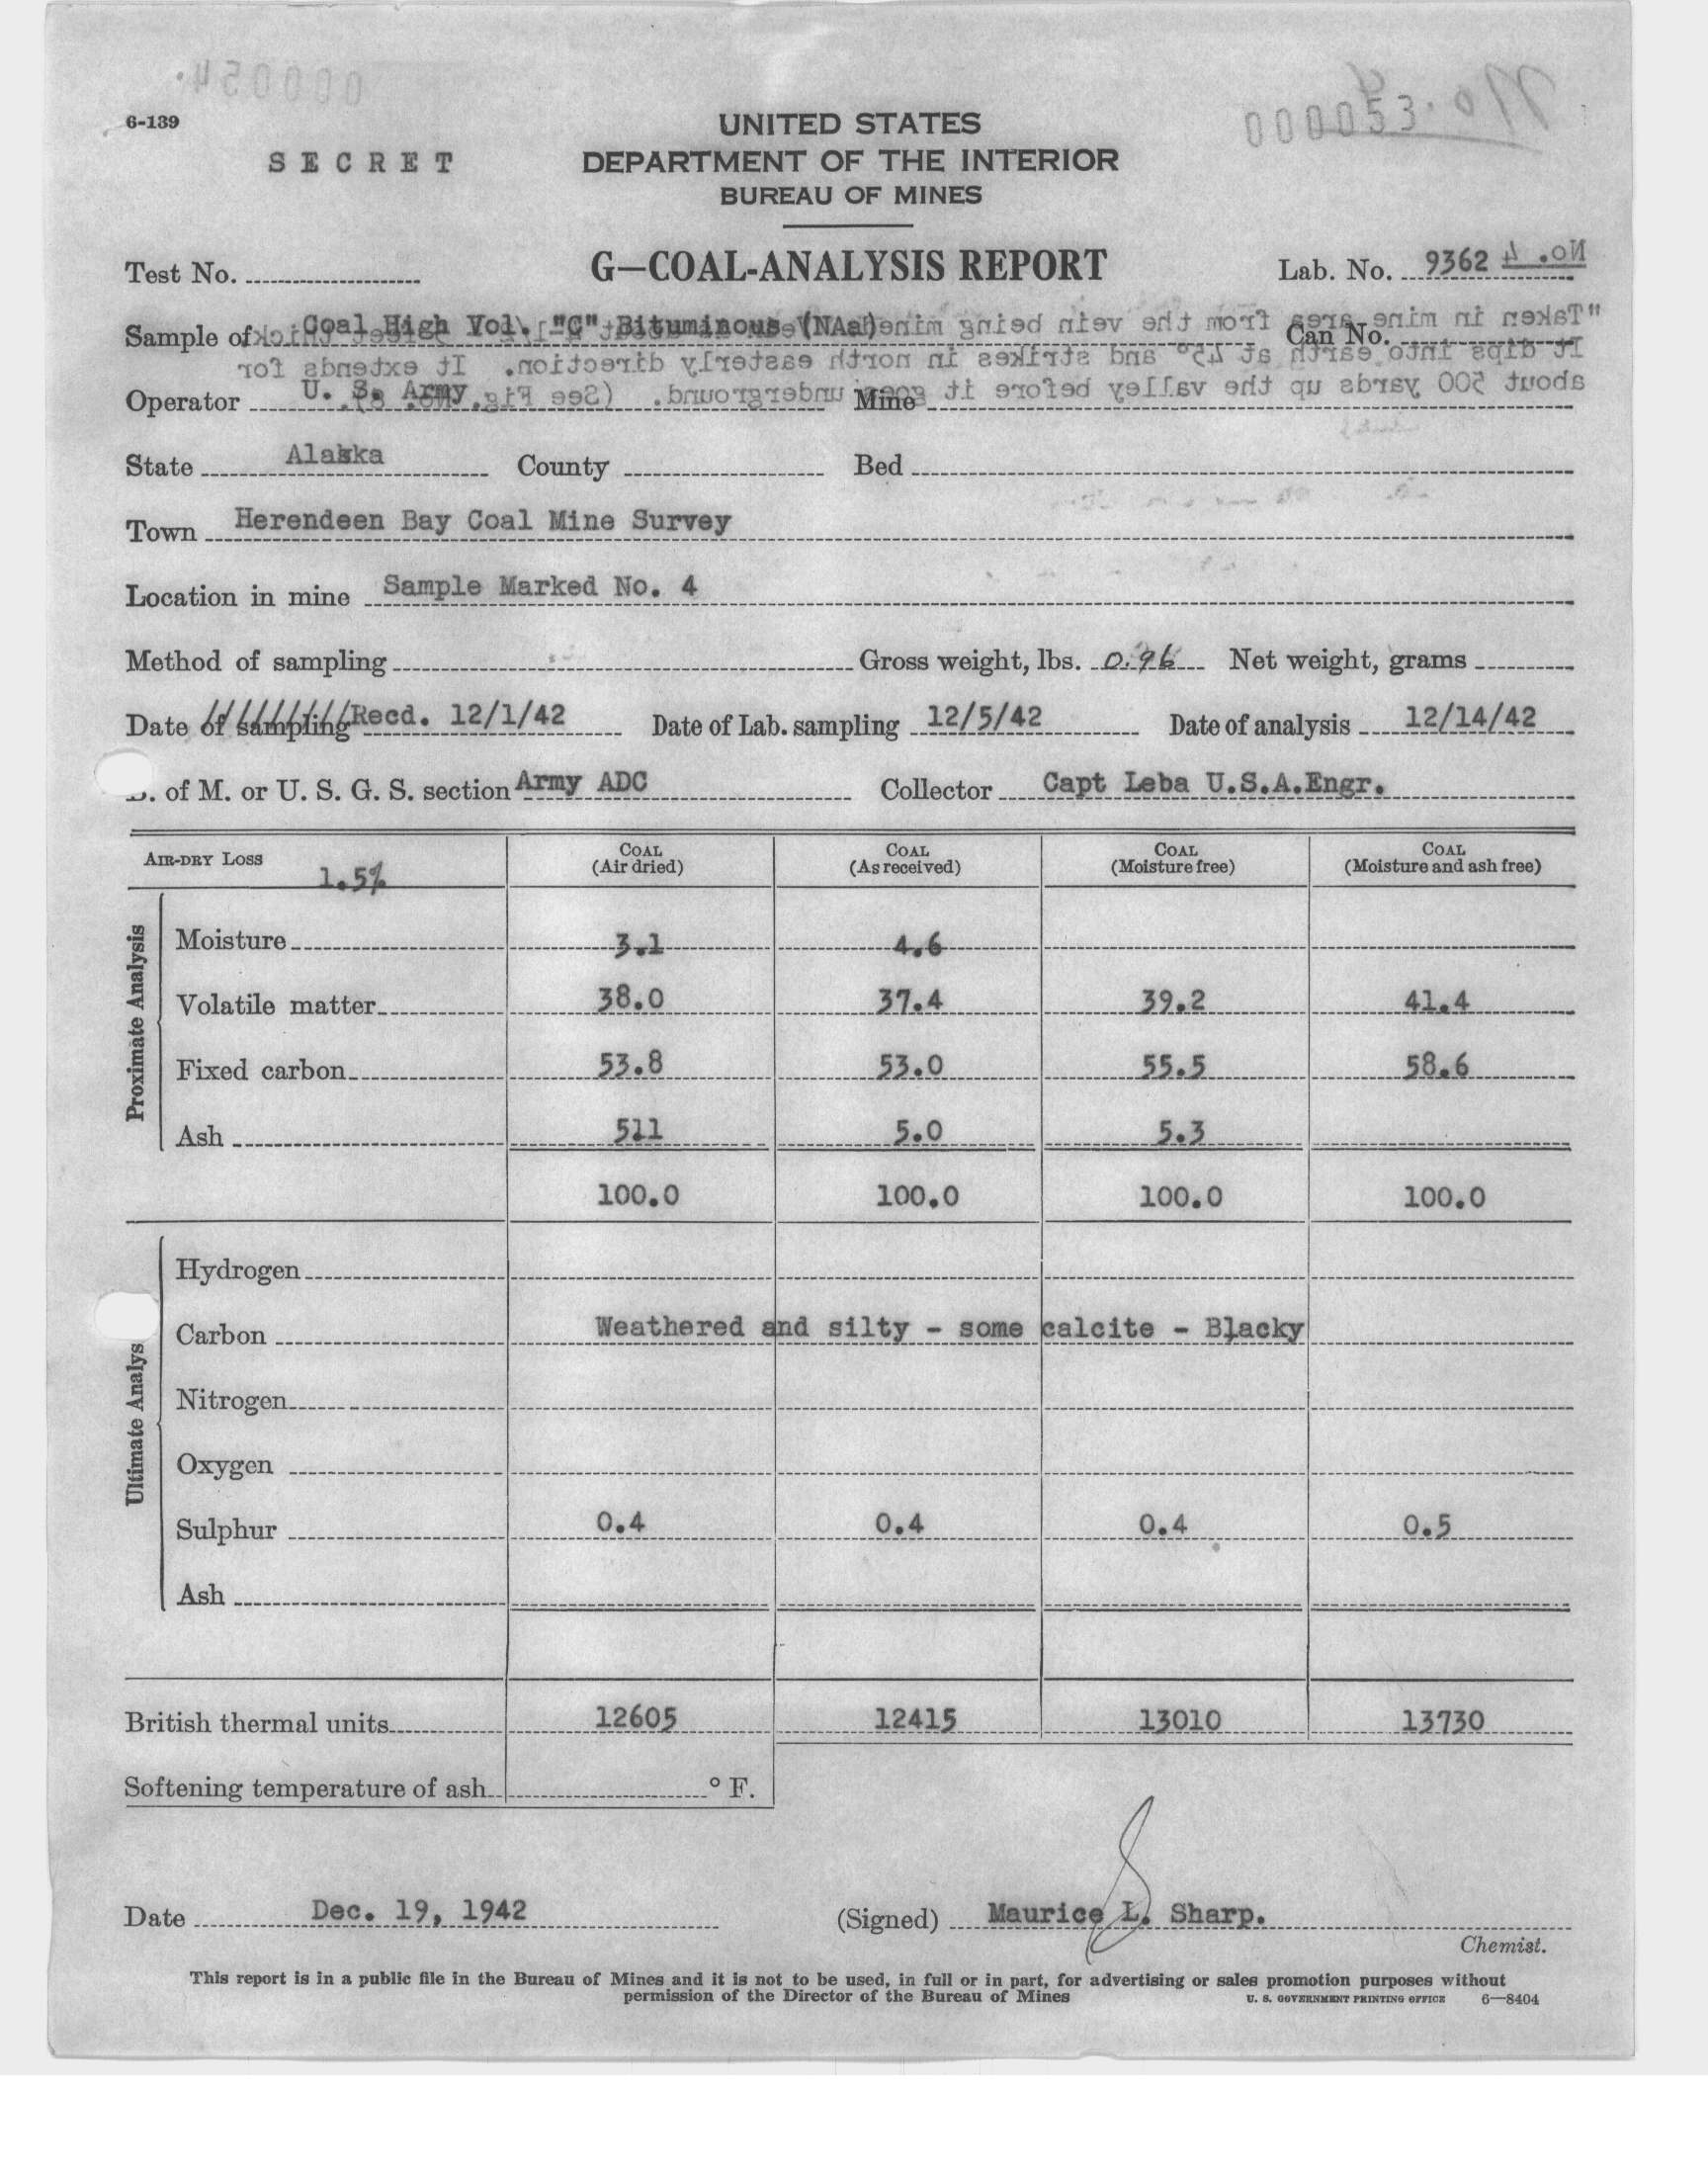 000054.
000053.
No. 4
6-139
SECRET
UNITED STATES
DEPARTMENT OF THE INTERIOR
BUREAU OF MINES
G—COAL-ANALYSIS REPORT
Test No.
Lab. No. 9362
No. 4
Sample of Coal High Vol. "C" Bituminous (NAa) Can No.
"Taken in mine area from the vein being mined
It dips into earth at 45° and strikes in north easterly direction. It extends for
about 500 yards up the valley before it goes underground. (See Fig. No. 8).
Operator U. S. Army Mine
State Alaska County Bed
Town Herendeen Bay Coal Mine Survey
Location in mine Sample Marked No. 4
Method of sampling Gross weight, lbs. 0.96 Net weight, grams
Date of sampling Recd. 12/1/42 Date of Lab. sampling 12/5/42 Date of analysis 12/14/42
. of M. or U. S. G. S. section Army ADC Collector Capt Leba U.S.A.Engr.
AIR-DRY LOSS 1.5% COAL (Air dried) COAL (As received) COAL (Moisture free) COAL (Moisture and ash free)
Proximate Analysis
Moisture 3.1 4.6
Volatile matter 38.0 37.4 39.2 41.4
Fixed carbon 53.8 53.0 55.5 58.6
Ash 511 5.0 5.3
100.0 100.0 100.0 100.0
Ultimate Analys
Hydrogen
Carbon Weathered and silty - some calcite - Blacky
Nitrogen
Oxygen
Sulphur 0.4 0.4 0.4 0.5
Ash
British thermal units 12605 12415 13010 13730
Softening temperature of ash ° F.
Date Dec. 19, 1942 (Signed) Maurice L. Sharp.
Chemist.
This report is in a public file in the Bureau of Mines and it is not to be used, in full or in part, for advertising or sales promotion purposes without
permission of the Director of the Bureau of Mines U. S. GOVERNMENT PRINTING OFFICE 6—8404